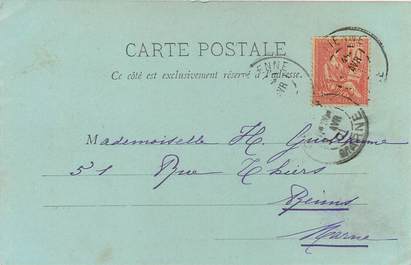 CARTE POSTALE
Ce côté est exclusivement réservé à l'adresse.
Mademoiselle H. Guillaume
51 Rue Thiers
Reims
Marne